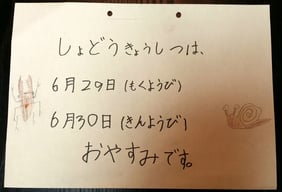 しょどうきょうしつは、
6月29日(もくようび)
6月30日(きんようび)
おやすみです。